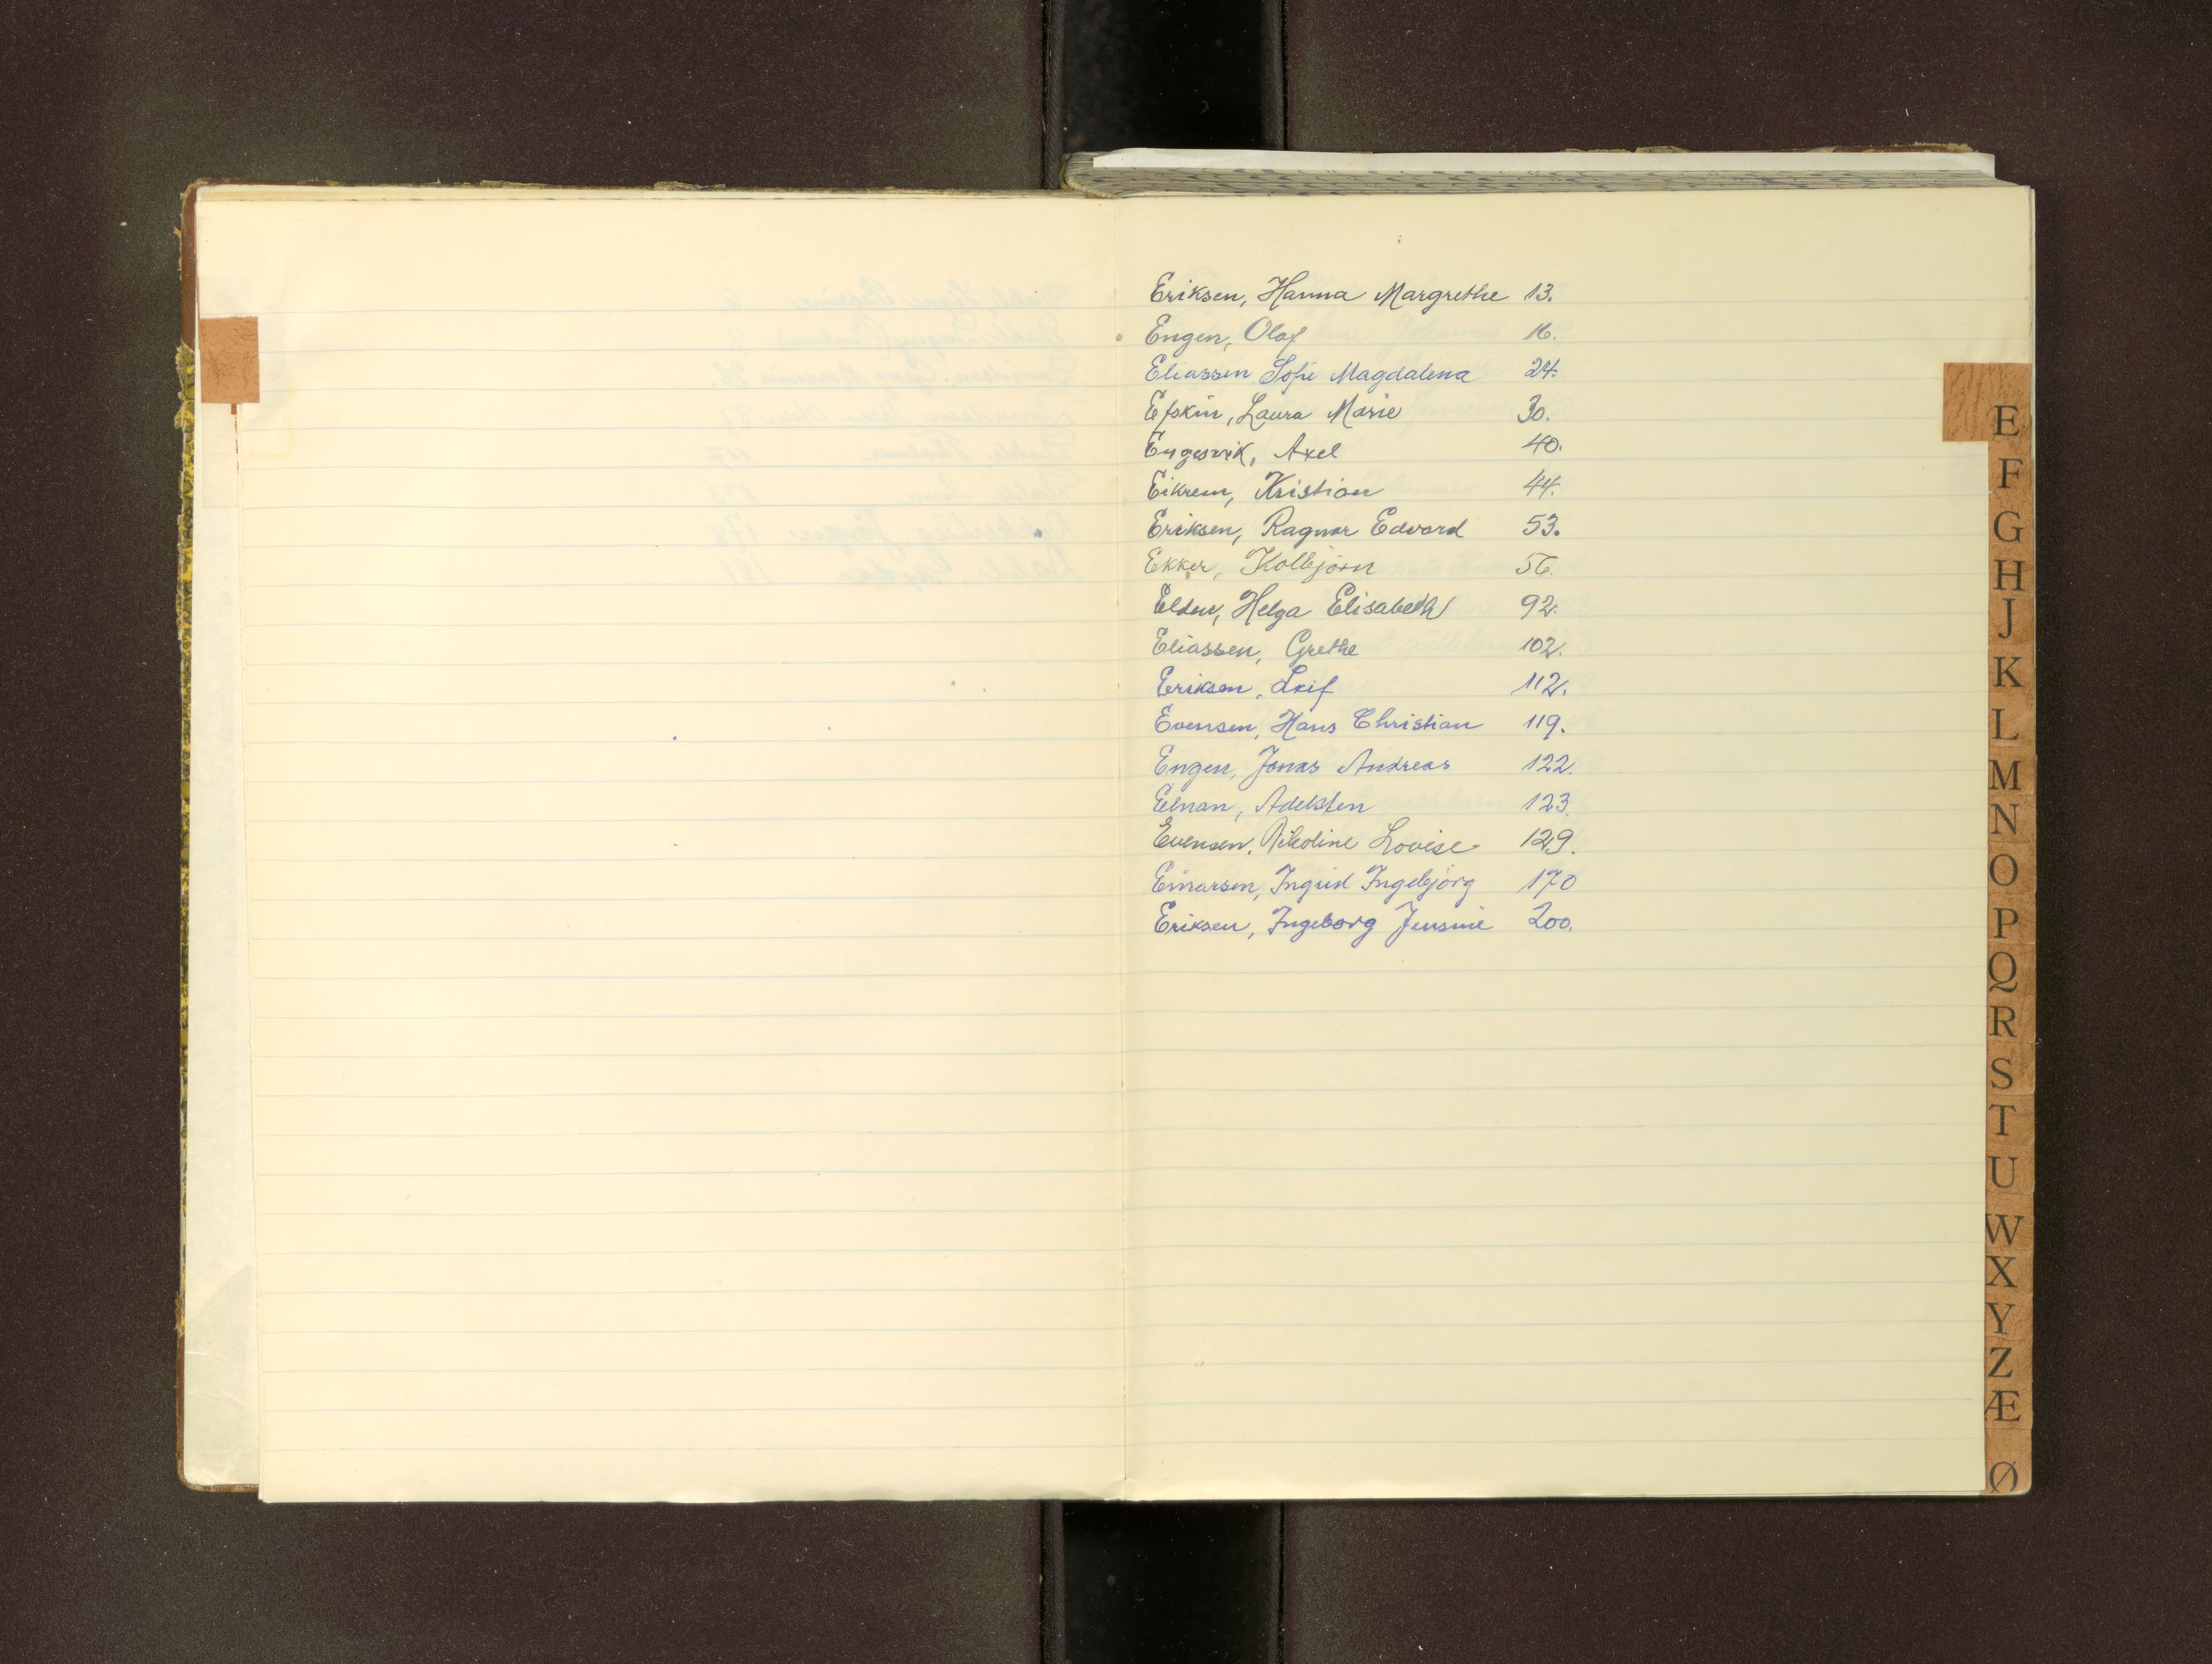 Eriksen, Hanna Margrethe 13.
Engen, Olaf 16.
Eliassen Sofie Magdalena 24.
Efskin, Laura Marie 30.
Engesvik, Axel 40.
Eikrem, Kristian 44.
Eriksen, Ragnar Edvard 53.
Ekker, Kolbjörn 56.
Elden, Helga Elisabeth 92.
Eliassen, Grethe 102.
Eriksen, Leif 112.
Evensen, Hans Christian 119.
Engen, Jonas Andreas 122.
Elnan, Adelsten 123.
Evensen, Nikoline Lovise 129.
Einarsen, Ingrid Ingebjörg 170
Eriksen, Ingeborg Jensine 200.
E
F
G
H
J
K
L
M
N
O
P
Q
R
S
T
U
W
X
Y
Z
Æ
Ø